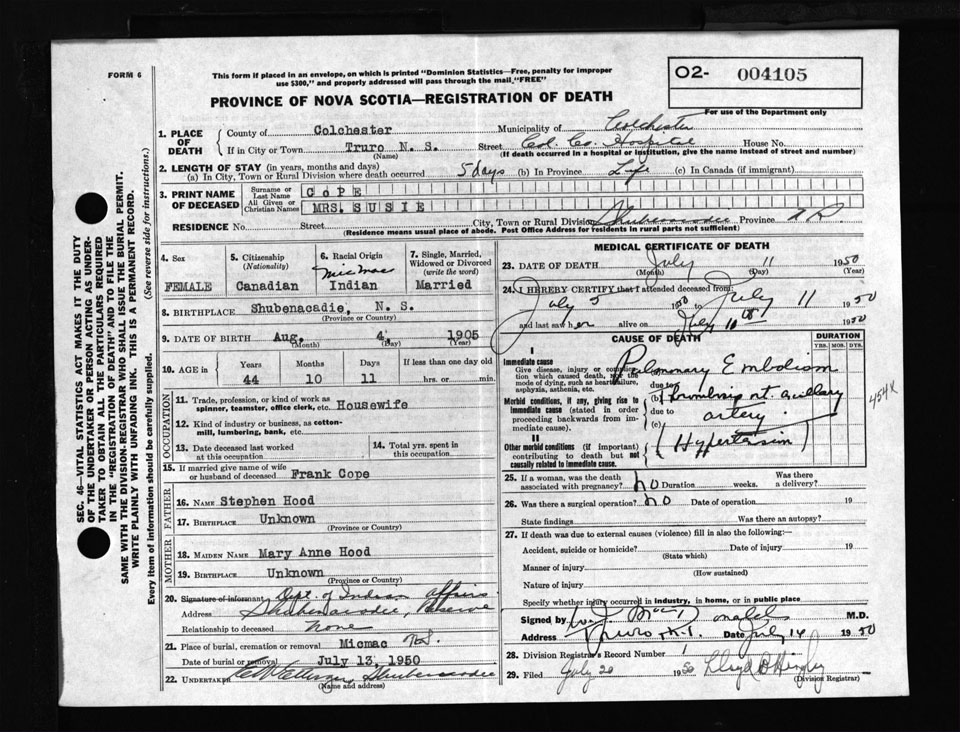 FORM 6
This form if placed in an envelope, on which is printed "Dominion Statistics—Free, penalty for improper
use $300," and properly addressed will pass through the mail, "FREE"
O2- 004105
For use of the Department only
PROVINCE OF NOVA SCOTIA—REGISTRATION OF DEATH
SEC. 46—VITAL STATISTICS ACT MAKES IT THE DUTY
OF THE UNDERTAKER OR PERSON ACTING AS UNDER-
TAKER TO OBTAIN ALL THE PARTICULARS REQUIRED
IN THE "REGISTRATION OF DEATH" AND TO FILE THE
SAME WITH THE DIVISION REGISTRAR WHO SHALL ISSUE THE BURIAL PERMIT.
WRITE PLAINLY WITH UNFADING INK. THIS IS A PERMANENT RECORD.
Every item of information should be carefully supplied. (See reverse side for instructions.)
1. PLACE OF DEATH
County of Colchester Municipality of Colchester
If in City or Town Truro N. S. Street Col. Co. Hospital House No.
(Name) (If death occurred in a hospital or institution, give the name instead of street and number)
2. LENGTH OF STAY (in years, months and days)
(a) In City, Town or Rural Division where death occurred 5 days (b) In Province Life (c) In Canada (if immigrant)
3. PRINT NAME OF DECEASED
Surname or Last Name COPE
All Given or Christian Names MRS. SUSIE
RESIDENCE No. Street City, Town or Rural Division Shubenacadie Province
(Residence means usual place of abode. Post Office Address for residents in rural parts not sufficient)
4. Sex
FEMALE
5. Citizenship (Nationality)
Canadian
6. Racial Origin
Micmac
Indian
7. Single, Married, Widowed or Divorced (write the word)
Married
8. BIRTHPLACE Shubenacadie, N. S.
(Province or Country)
9. DATE OF BIRTH Aug. 4, 1905
(Month) (Day) (Year)
10. AGE in Years Months Days If less than one day old
44 10 11 hrs. or min.
OCCUPATION
11. Trade, profession, or kind of work as
spinner, teamster, office clerk, etc. Housewife
12. Kind of industry or business, as cotton-
mill, lumbering, bank, etc.
13. Date deceased last worked
at this occupation
14. Total yrs. spent in
this occupation
15. If married give name of wife
or husband of deceased Frank Cope
FATHER
16. NAME Stephen Hood
17. BIRTHPLACE Unknown
(Province or Country)
MOTHER
18. MAIDEN NAME Mary Anne Hood
19. BIRTHPLACE Unknown
(Province or Country)
20. Signature of informant Dept. of Indian Affairs
Address Shubenacadie, Reserve
Relationship to deceased None
21. Place of burial, cremation or removal Micmac N.S.
Date of burial or removal July 13, 1950
22. UNDERTAKER Shubenacadie
(Name and address)
MEDICAL CERTIFICATE OF DEATH
23. DATE OF DEATH July 11 1950
(Month) (Day) (Year)
24. I HEREBY CERTIFY that I attended deceased from:
July 5 1950 to July 11 1950
and last saw her alive on July 10th 1950
CAUSE OF DEATH
DURATION
YRS. MOS. DYS.
I
Immediate cause
Give disease, injury or compli-
cation which caused death, not the
mode of dying, such as heart failure,
asphyxia, asthenia, etc.
Pulmonary Embolism
due to
Morbid conditions, if any, giving rise to
immediate cause (stated in order
proceeding backwards from im-
mediate cause).
(b) Thrombosis rt. axillary
due to artery
(c)
II
Other morbid conditions (if important)
contributing to death but not
causally related to immediate cause.
(Hypertension)
454X
25. If a woman, was the death
associated with pregnancy? no Duration weeks. Was there
a delivery?
26. Was there a surgical operation? no Date of operation 19
State findings Was there an autopsy?
27. If death was due to external causes (violence) fill in also the following:—
Accident, suicide or homicide? Date of injury 19
(State which)
Manner of injury
(How sustained)
Nature of injury
Specify whether injury occurred in industry, in home, or in public place
Signed by M.D.
Address Truro Date July 14 1950
28. Division Registrar's Record Number 1
29. Filed July 20 1950 Lloyd
(Division Registrar)